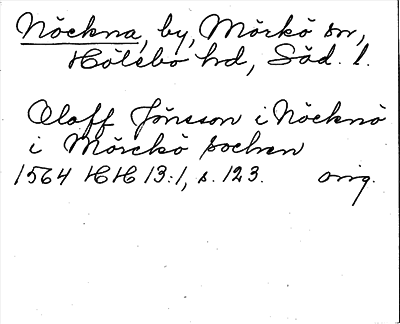 Nöckna, by, Mörkö sn,
Hölebo hd, Söd. l.
Oloff Jönsson i Nöcknö
i Mörckö sochen
1564 HH 13:1, s. 123. orig.